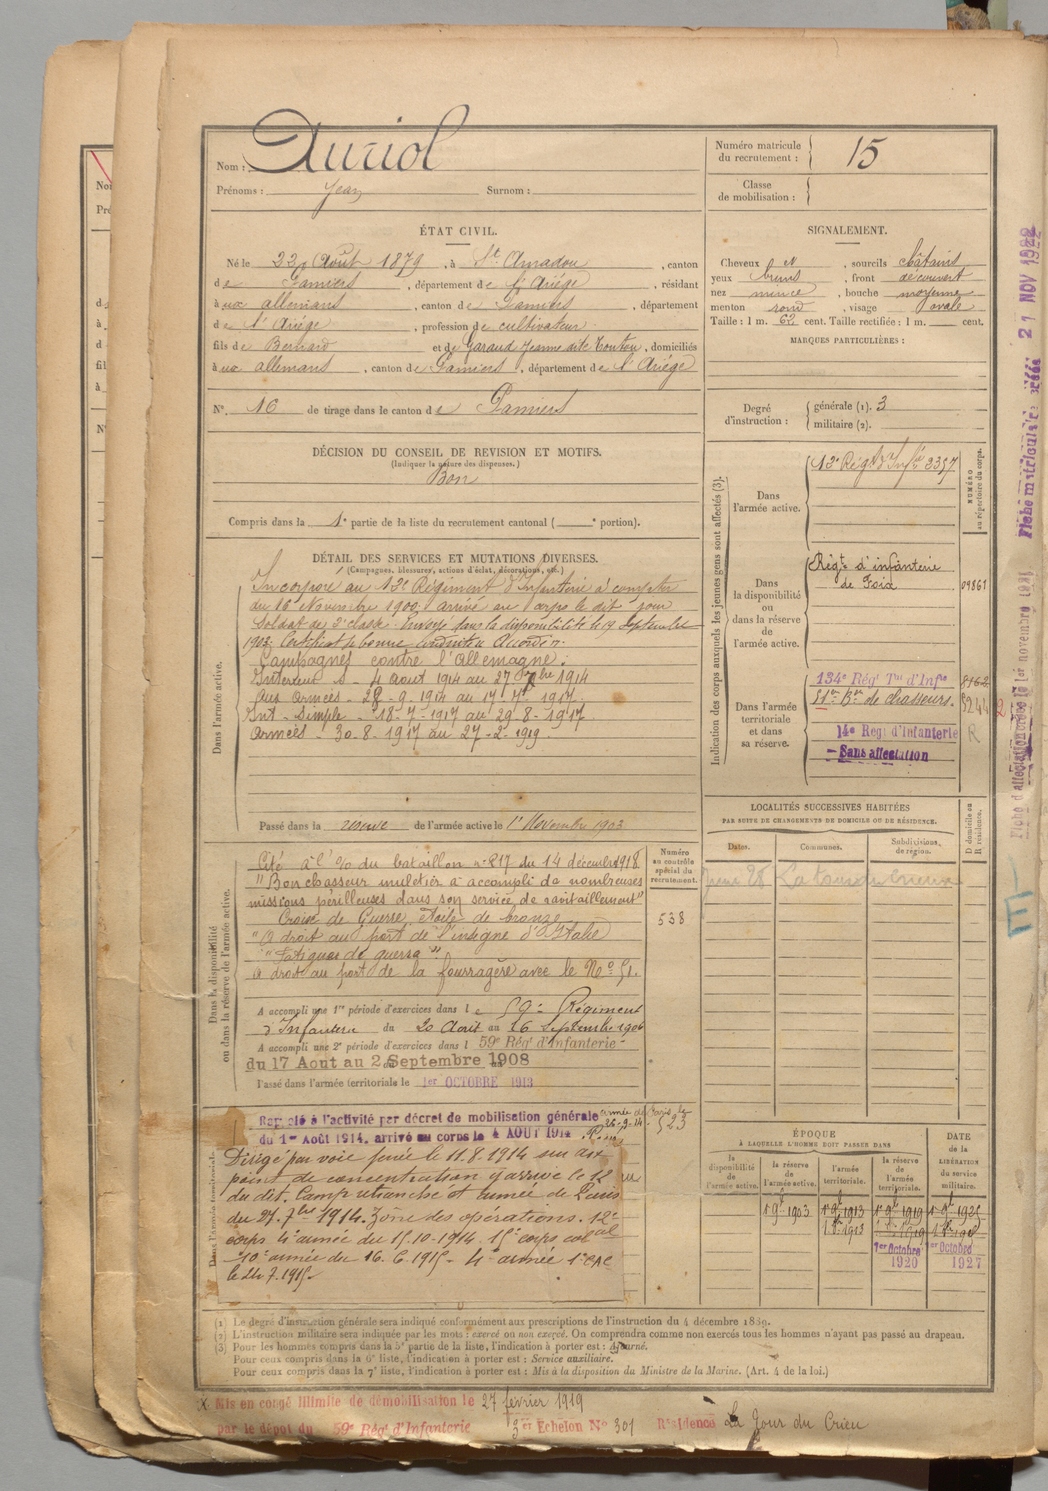 Nom : Auriol
Prénoms : Jean Surnom :
Numéro matricule du recrutement : 15
Classe de mobilisation :
ÉTAT CIVIL.
Né le 22 Août 1879, à St Amadou, canton
de Pamiers, département de l'Ariège, résidant
à aux allemans, canton de Pamiers, département
de l'Ariège, profession de cultivateur
fils de Bernard et de Garaud Jeanne dite Touton, domiciliés
à aux allemans, canton de Pamiers, département de l'Ariège
N° 16 de tirage dans le canton de Pamiers
SIGNALEMENT.
Cheveux et, sourcils châtains
yeux bruns, front découvert
nez mince, bouche moyenne
menton rond, visage ovale
Taille : 1 m. 62 cent. Taille rectifiée : 1 m. cent.
MARQUES PARTICULIÈRES :
Degré d'instruction : générale (1). 3
militaire (2).
DÉCISION DU CONSEIL DE REVISION ET MOTIFS.
(Indiquer la nature des dispenses.)
Bon
Compris dans la 1e partie de la liste du recrutement cantonal ( e portion).
DÉTAIL DES SERVICES ET MUTATIONS DIVERSES.
(Campagnes, blessures, actions d'éclat, décorations, etc.)
Dans l'armée active.
Incorporé au 12e Régiment d'Infanterie à compter
du 16 Novembre 1900. arrivé au corps le dit jour
Soldat de 2e classe. Envoyé dans la disponibilité le 19 Septembre
1903. Certificat de bonne conduite Accordé.
Campagnes contre l'allemagne :
Interieur S - 4 aout 1914 au 27 7bre 1914
Aux Armées - 28 - 9 - 1914 au 17 1917.
Int - Simple - 18 - 7 - 1917 au 29 - 8 - 1917
Armées : 30 - 8 - 1917 au 27 - 2 - 1919.
Passé dans la réserve de l'armée active le 1er Novembre 1903
Indication des corps auxquels les jeunes gens sont affectés (3).
NUMÉRO au répertoire du corps.
Dans l'armée active.
12e Régt d'Infie 3357
Dans la disponibilité ou dans la réserve de l'armée active.
Régt d'infanterie
de Foix 09861
Dans l'armée territoriale et dans sa réserve.
134e Régt Tal d'Infie
51e Bon de chasseurs.
14e Régt d'Infanterie R
Sans affectation
LOCALITÉS SUCCESSIVES HABITÉES
PAR SUITE DE CHANGEMENTS DE DOMICILE OU DE RÉSIDENCE.
D domicile ou R résidence.
Dates. Communes. Subdivisions de région.
La tour du Crieu
Dans la disponibilité ou dans la réserve de l'armée active.
Numéro au contrôle spécial du recrutement.
538
Cité à l'O/ du bataillon n° 217 du 14 décembre 1918.
"Bon chasseur muletier a accompli de nombreuses
missions périlleuses dans son service de ravitaillement"
Croix de Guerre étoile de bronze
"A droit au port de l'insigne d'Italie
"Fatigues de guerre"
A droit au port de la fourragère avec le No 51.
A accompli une 1re période d'exercices dans le 59e Régiment
d'Infanterie du 20 Août au 16 Septembre 1906
A accompli une 2e période d'exercices dans le 59e Régt d'Infanterie
du 17 Aout au 2 Septembre 1908
Passé dans l'armée territoriale le 1er OCTOBRE 1913
Rappelé à l'activité par décret de mobilisation générale
du 1er Août 1914, arrivé au corps le 4 AOUT 1914
523
Dirigé par voie ferrée le 11.8.1914 sur
point de concentration y arrive le 12
du dit. Camp retranché et armée de Paris
du 27. 7bre 1914. Zone des opérations. 12e
corps 4e armée du 15.10.1914. 15e corps
10e armée du 16.6.1915 - 4e armée 1er CAC
le 24.7.1915.
ÉPOQUE
À LAQUELLE L'HOMME DOIT PASSER DANS
la disponibilité de l'armée active. la réserve de l'armée active. l'armée territoriale. la réserve de l'armée territoriale.
DATE de la LIBÉRATION du service militaire.
1903 1913 1919
1er Octobre 1920 1er Octobre 1927
(1) Le degré d'instruction générale sera indiqué conformément aux prescriptions de l'instruction du 4 décembre 1889.
(2) L'instruction militaire sera indiquée par les mots : exercé ou non exercé. On comprendra comme non exercés tous les hommes n'ayant pas passé au drapeau.
(3) Pour les hommes compris dans la 5e partie de la liste, l'indication à porter est : Ajourné.
Pour ceux compris dans la 6e liste, l'indication à porter est : Service auxiliaire.
Pour ceux compris dans la 7e liste, l'indication à porter est : Mis à la disposition du Ministre de la Marine. (Art. 4 de la loi.)
X Mis en congé illimité de démobilisation le 27 février 1919
par le dépôt du 59e Régt d'Infanterie 3er Echelon N° 301 Résidence La Tour du Crieu
21 NOV 1922